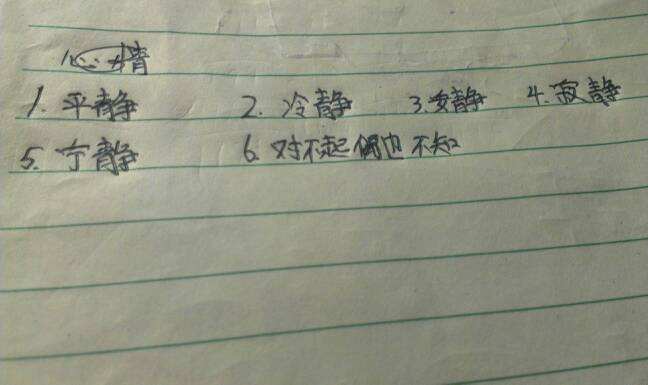 心情
1. 平静 2. 冷静 3. 安静 4. 寂静
5. 宁静 6. 对不起俺也不知